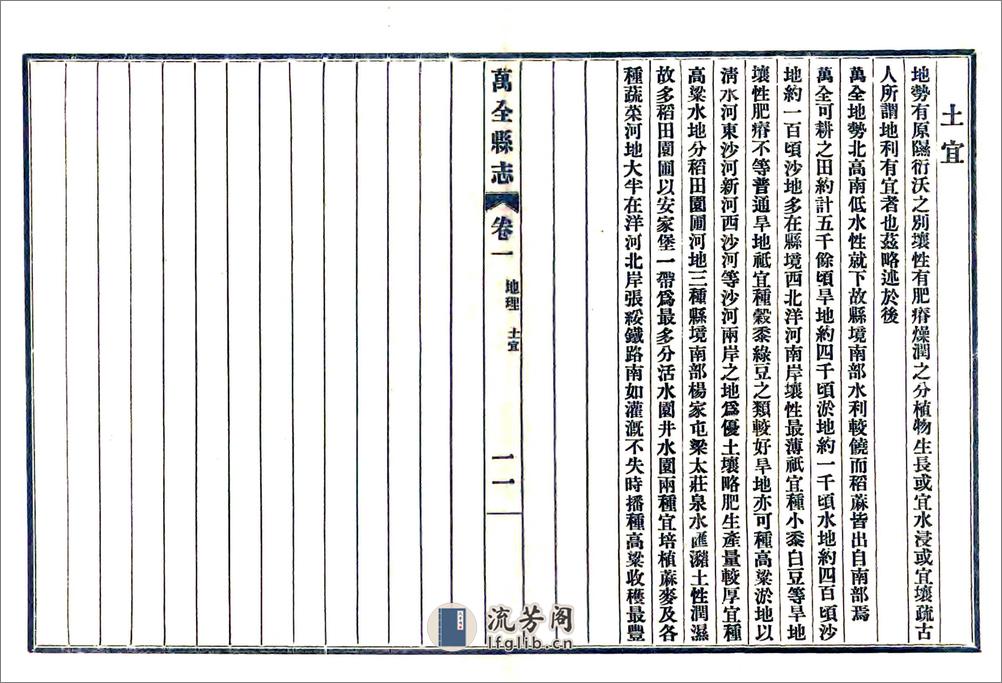 土宜
地勢有原隰衍沃之別壤性有肥瘠燥潤之分植物生長或宜水浸或宜壤疏古
人所謂地利有宜者也茲略述於後
萬全地勢北高南低水性就下故縣境南部水利較饒而稻蔴皆出自南部焉
萬全可耕之田約計五千餘頃旱地約四千頃淤地約一千頃水地約四百頃沙
地約一百頃沙地多在縣境西北洋河南岸壤性最薄祇宜種小黍白豆等旱地
壤性肥瘠不等普通旱地祇宜種穀黍綠豆之類較好旱地亦可種高粱淤地以
清水河東沙河新河西沙河等沙河兩岸之地爲優土壤略肥生產量較厚宜種
高粱水地分稻田園圃河地三種縣境南部楊家屯梁太莊泉水匯瀦土性潤濕
故多稻田園圃以安家堡一帶爲最多分活水園井水園兩種宜培植蔴麥及各
種蔬菜河地大半在洋河北岸張綏鐵路南如灌漑不失時播種高粱收穫最豐
萬全縣志 卷一 地理 土宜 一一
流芳阁
lfglib.cn